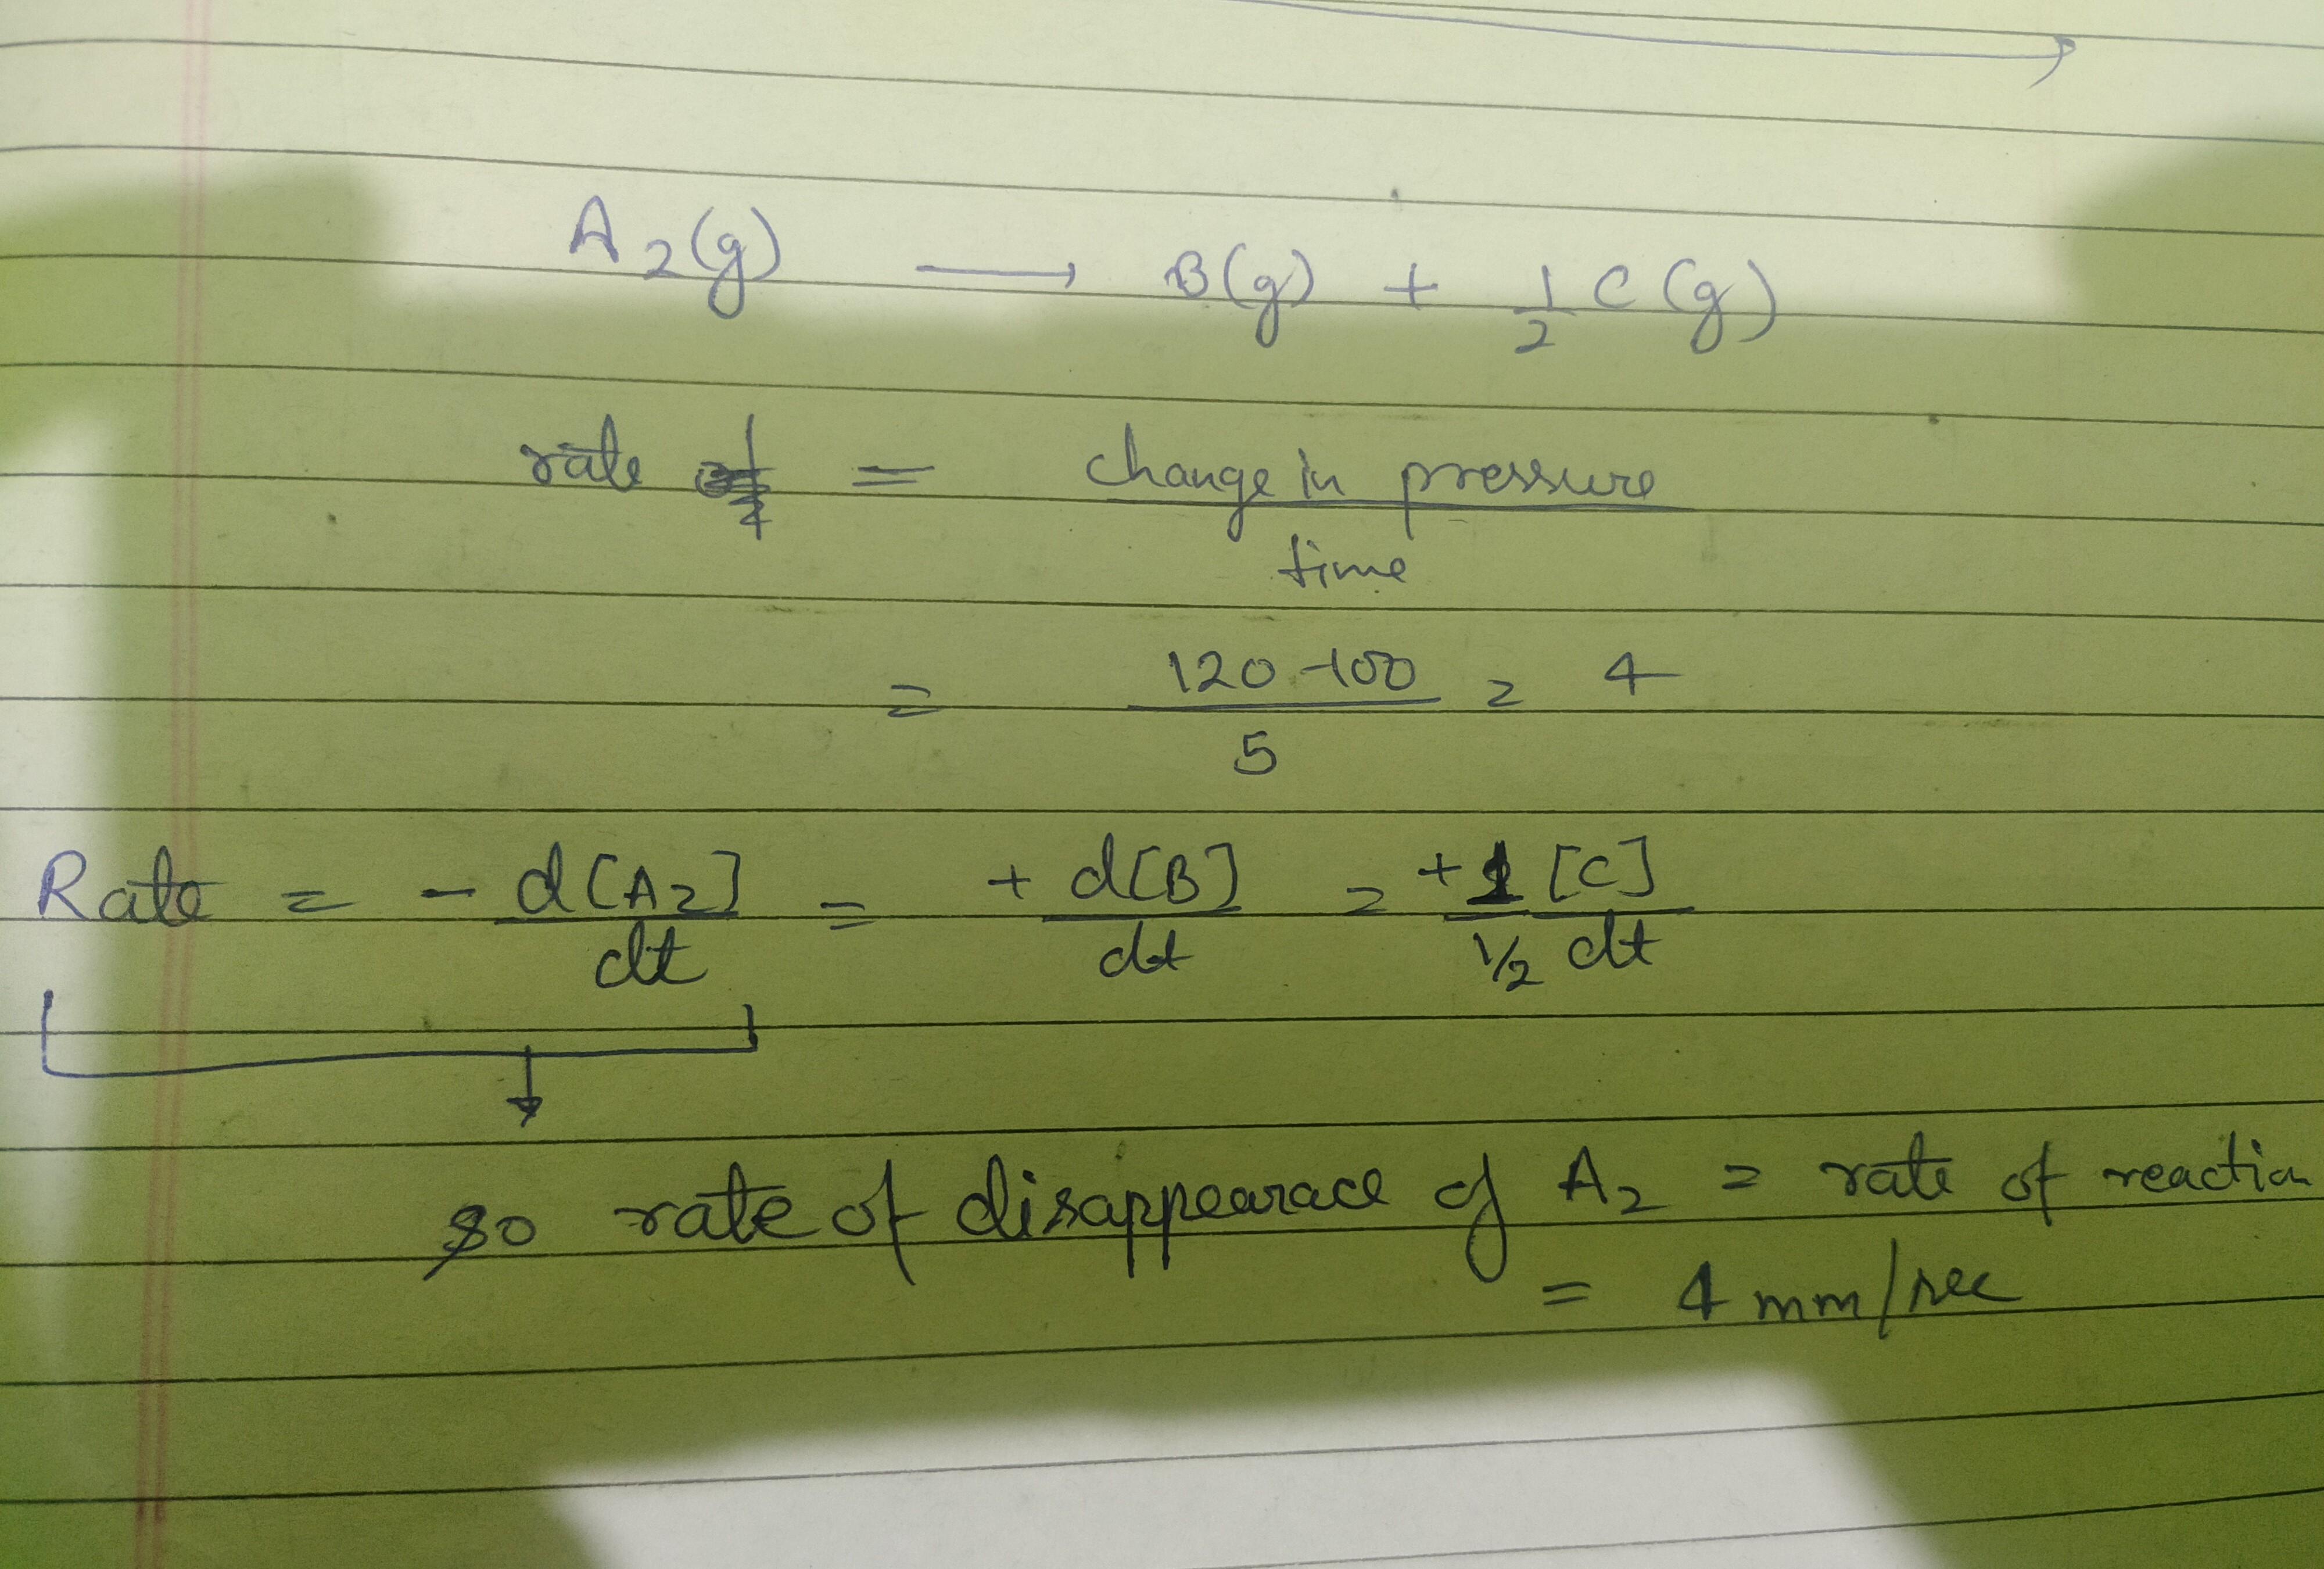 A₂(g) → B(g) + 1/2 C(g)
rate = change in pressure / time
= 120-100 / 5 = 4
Rate = - d[A₂]/dt = + d[B]/dt = + 1/(1/2) [C]/dt
so rate of disappearace of A₂ = rate of reaction
= 4 mm/sec